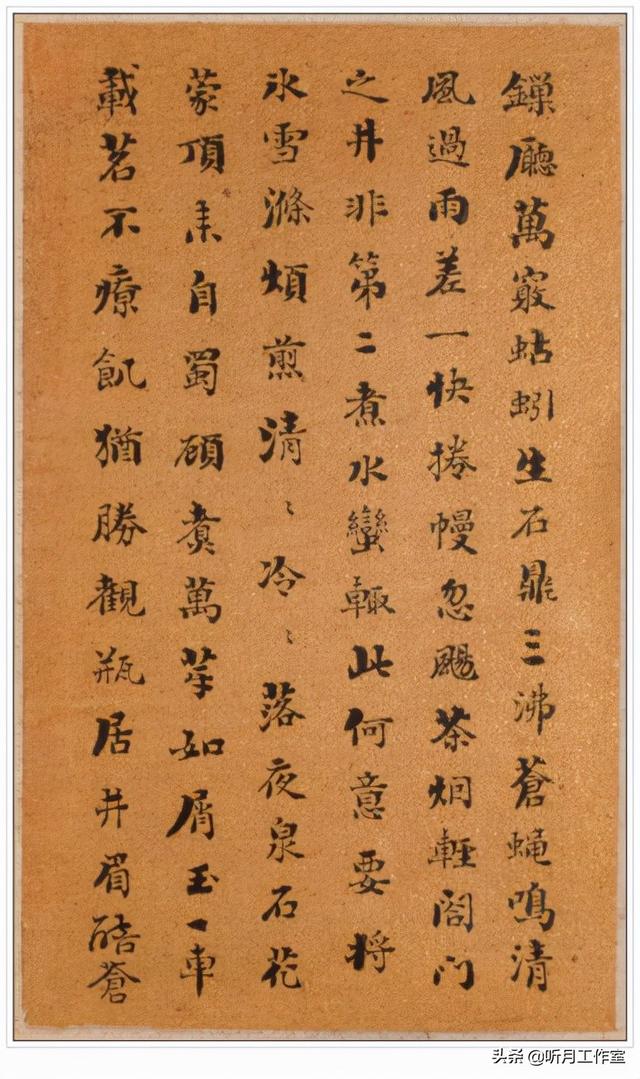 廳萬竅蚯蚓生石鼎三沸蒼蠅鳴清
風過雨差一快捲幔忽颺茶烟輕閤門
之井非第二煮水蠻輙此何意要將
氷雪滌煩煎清〻冷〻落夜泉石花
蒙頂来自蜀顧煑萬芽如屑玉一車
載茗不療飢猶勝觀瓶居井眉蒼
头条 @听月工作室